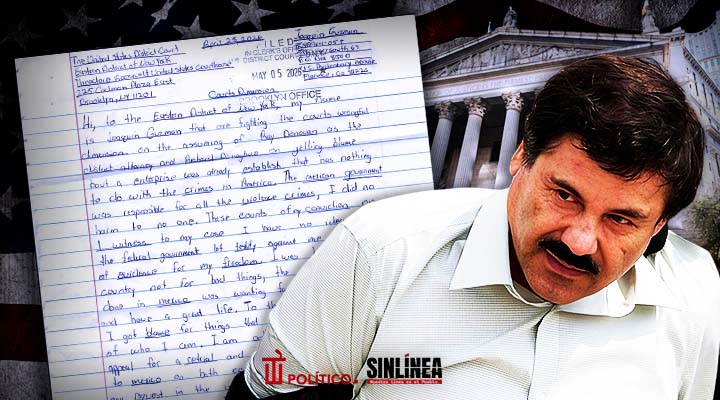 April 28, 2026
FILED
IN CLERK'S OFFICE
DISTRICT COURT
MAY 05 2026
BROOKLYN OFFICE
Joaquin Guzman
P.O. Box 8500
Florence, CO
The United States District Court
Eastern District of New York
Theodore Roosevelt United States Courthouse
225 Cadman Plaza East
Brooklyn, NY 11201
Courts Dimension
Hi, to the Eastern District of New York my name
is Joaquin Guzman that are fighting the courts wrongful
dimension on the assuming of Ray Donovan as the
district attorney and Richard Donoghue on yelling blame
bout a enterprise was already establish that has nothing
to do with the crimes in America. The mexican government
was responsible for all the violence crimes, I did no
harm to no one. These counts of my conviction
I witness to my case I have no
the federal government lot testify against me
of evidence for my freedom I was
country not for bad things, the
done in mexico was wanting
and have a great life. To th
I got blame for things that
of who I am. I am a
appeal for a retrial and
to mexico on both
my request in the
POLÍTICO
SINLÍNEA
Nuestra línea es el Pueblo.